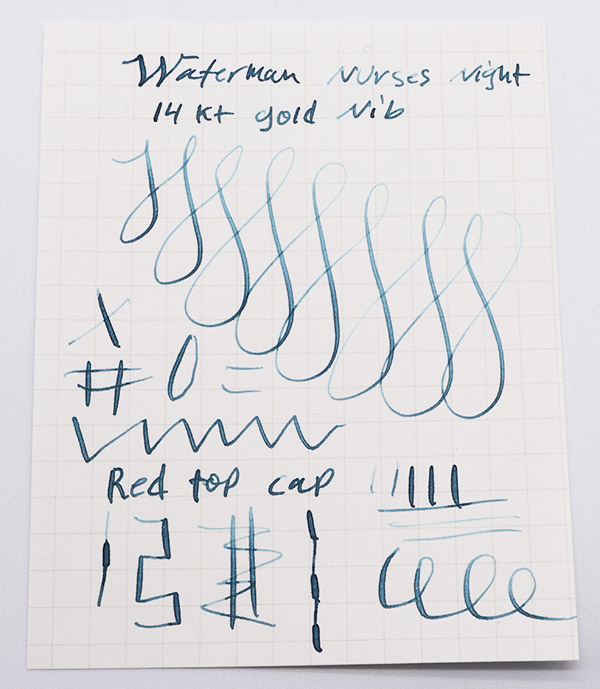 Waterman Nurses Night
14 Kt gold Nib
Red top cap